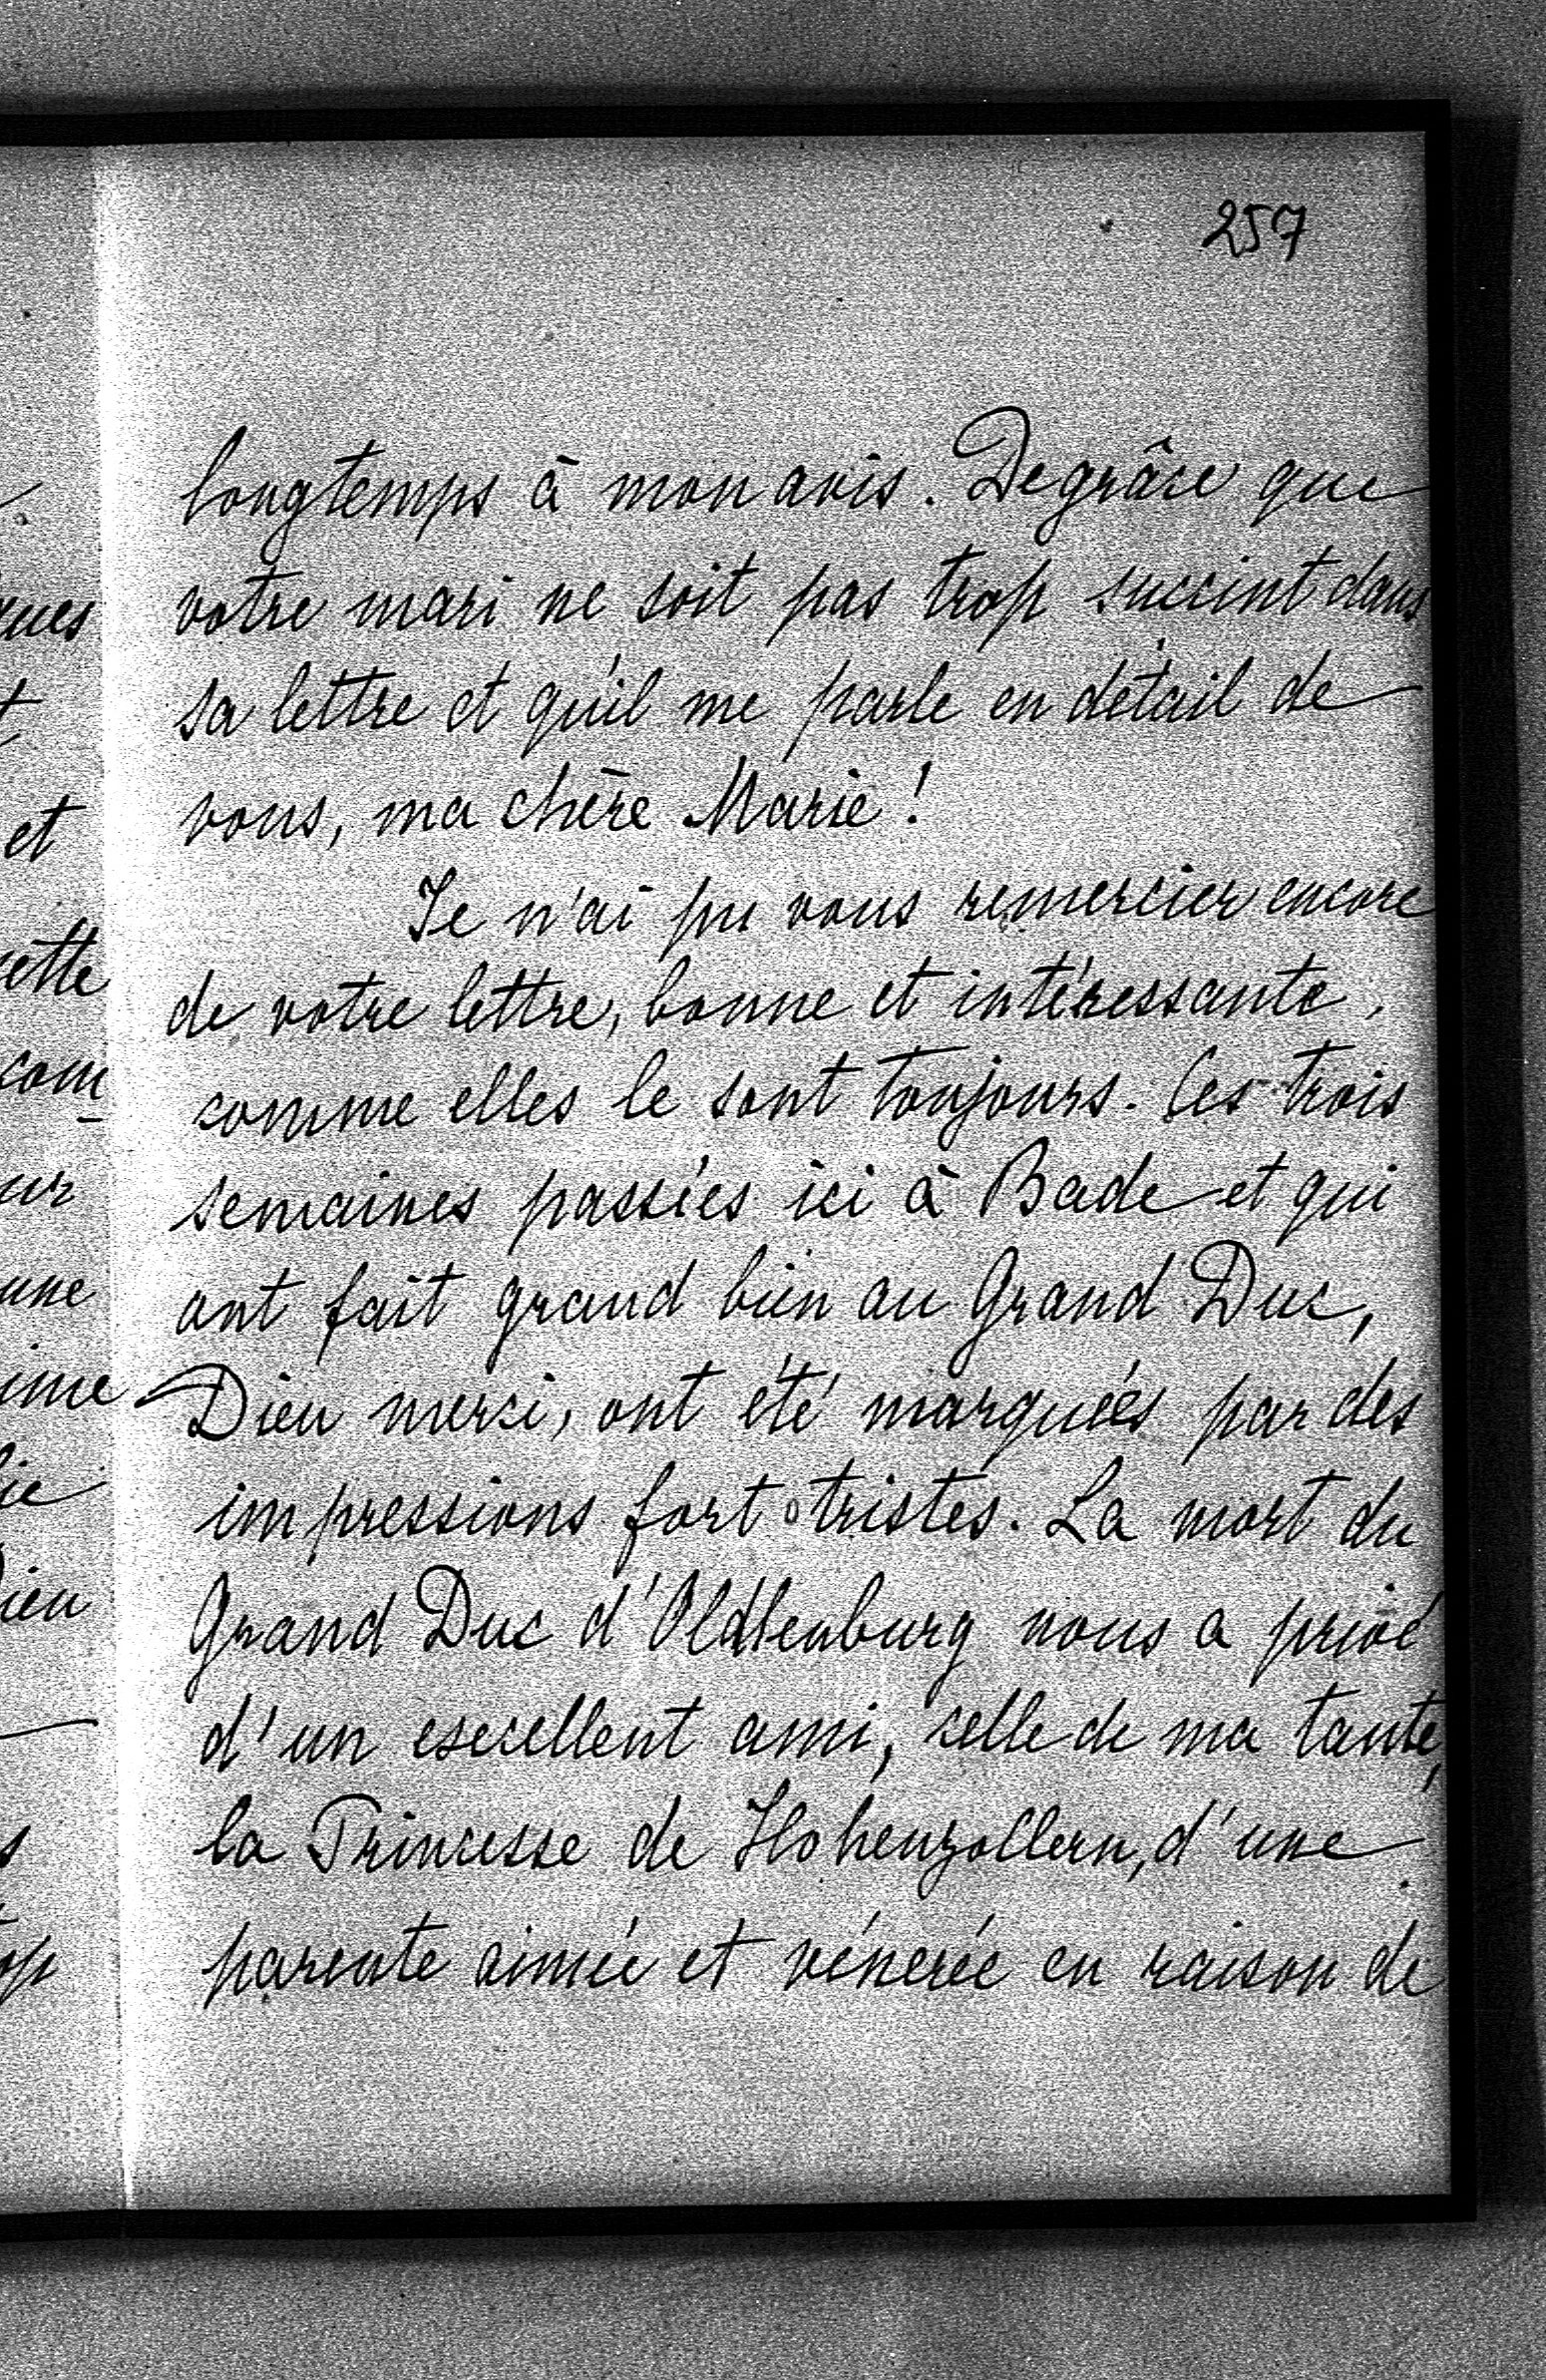 257
longtemps à mon avis. De grâce que
votre mari ne soit pas trop succint dans
ques
sa lettre et qu'il me parle en détail de
vous, ma chère Marie!
et
Je n'ai pu vous remercier encore
cette
de votre lettre, bonne et intéressante,
com
comme elles le sont toujours. Ces trois
semaines passées ici à Bade et qui
ur
une
ont fait grand bien au Grand Duc,
Dieu merci, ont été marquées par des
impressions fort tristes. La mort du
Grand Duc d'Oldtenburg nous a privé
d'un esecellent ami, celle de ma tante,
la Princesse de Hohenzollern, d'une
parente aimée et vénerée en raison de